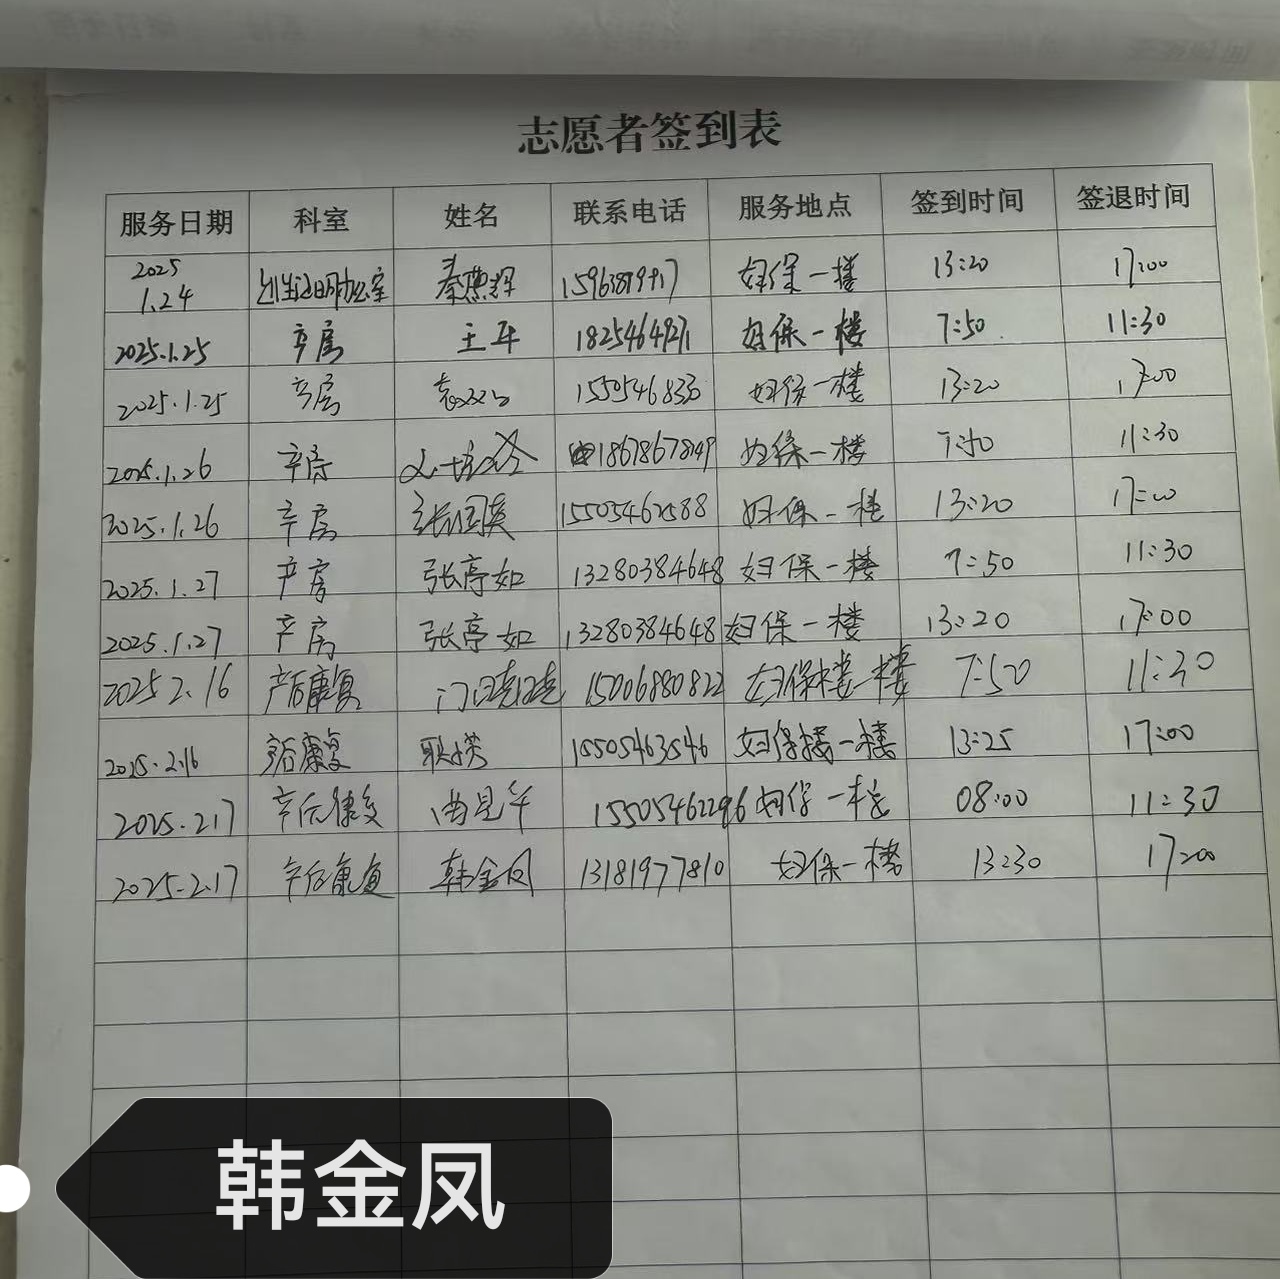 志愿者签到表
服务日期 科室 姓名 联系电话 服务地点 签到时间 签退时间
2025 1.24 出生证明办公室 秦燕辉 妇保一楼 13:20 17:00
2025.1.25 产房 王华 妇保一楼 7:50 11:30
2025.1.25 产房 1550546833 妇保一楼 13:20 17:00
2025.1.26 产房 18678678149 妇保一楼 7:50 11:30
2025.1.26 产房 张国英 15505462588 妇保一楼 13:20 17:00
2025.1.27 产房 张亭如 13280384648 妇保一楼 7:50 11:30
2025.1.27 产房 张亭如 13280384648 妇保一楼 13:20 17:00
2025 2.16 产后康复 门晓晓 15006880822 妇保楼一楼 7:50 11:30
2025.2.16 产后康复 15505463546 妇保楼一楼 13:25 17:00
2025.2.17 产后康复 15505462296 妇保一楼 08:00 11:30
2025.2.17 产后康复 韩金凤 13181977810 妇保一楼 13:30 17:00
韩金凤